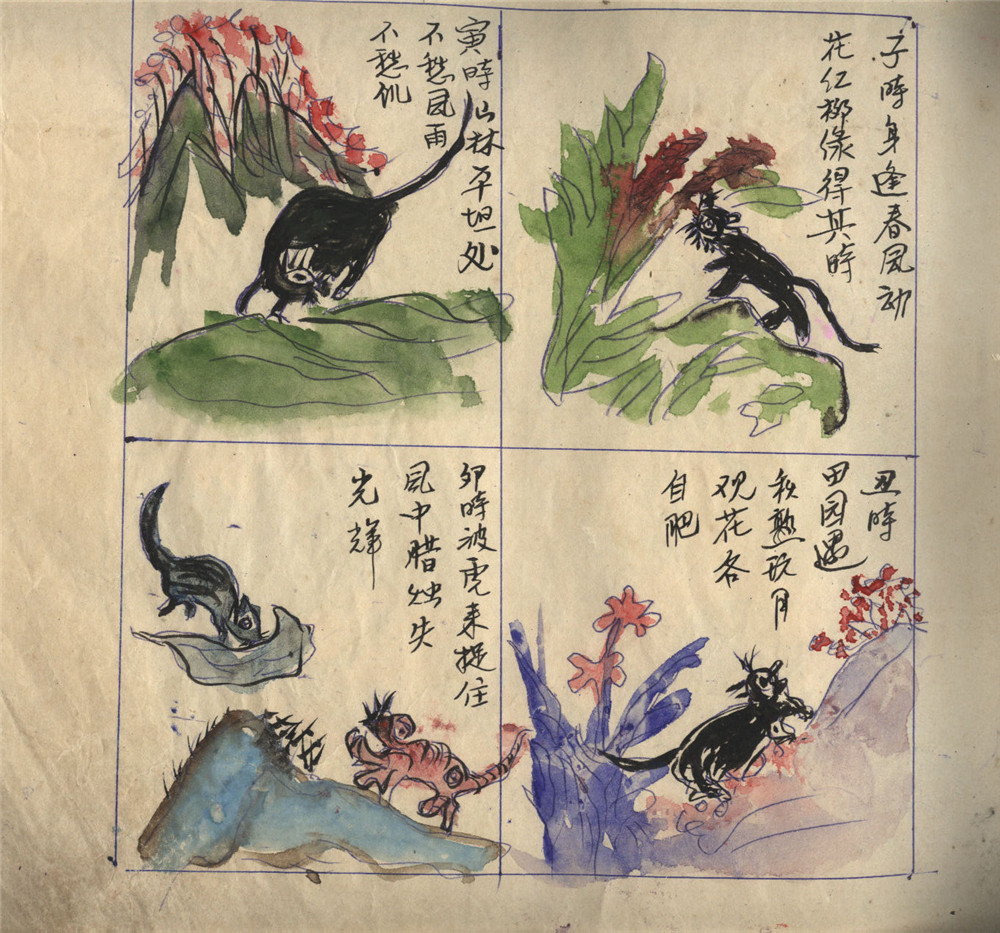 子時身逢春風动
花红柳綠得其時
丑時
田园遇
秋熟玩月
观花各
自肥
寅時山林平坦处
不愁風雨
不愁飢
卯時被虎来捉住
風中腊烛失
光輝